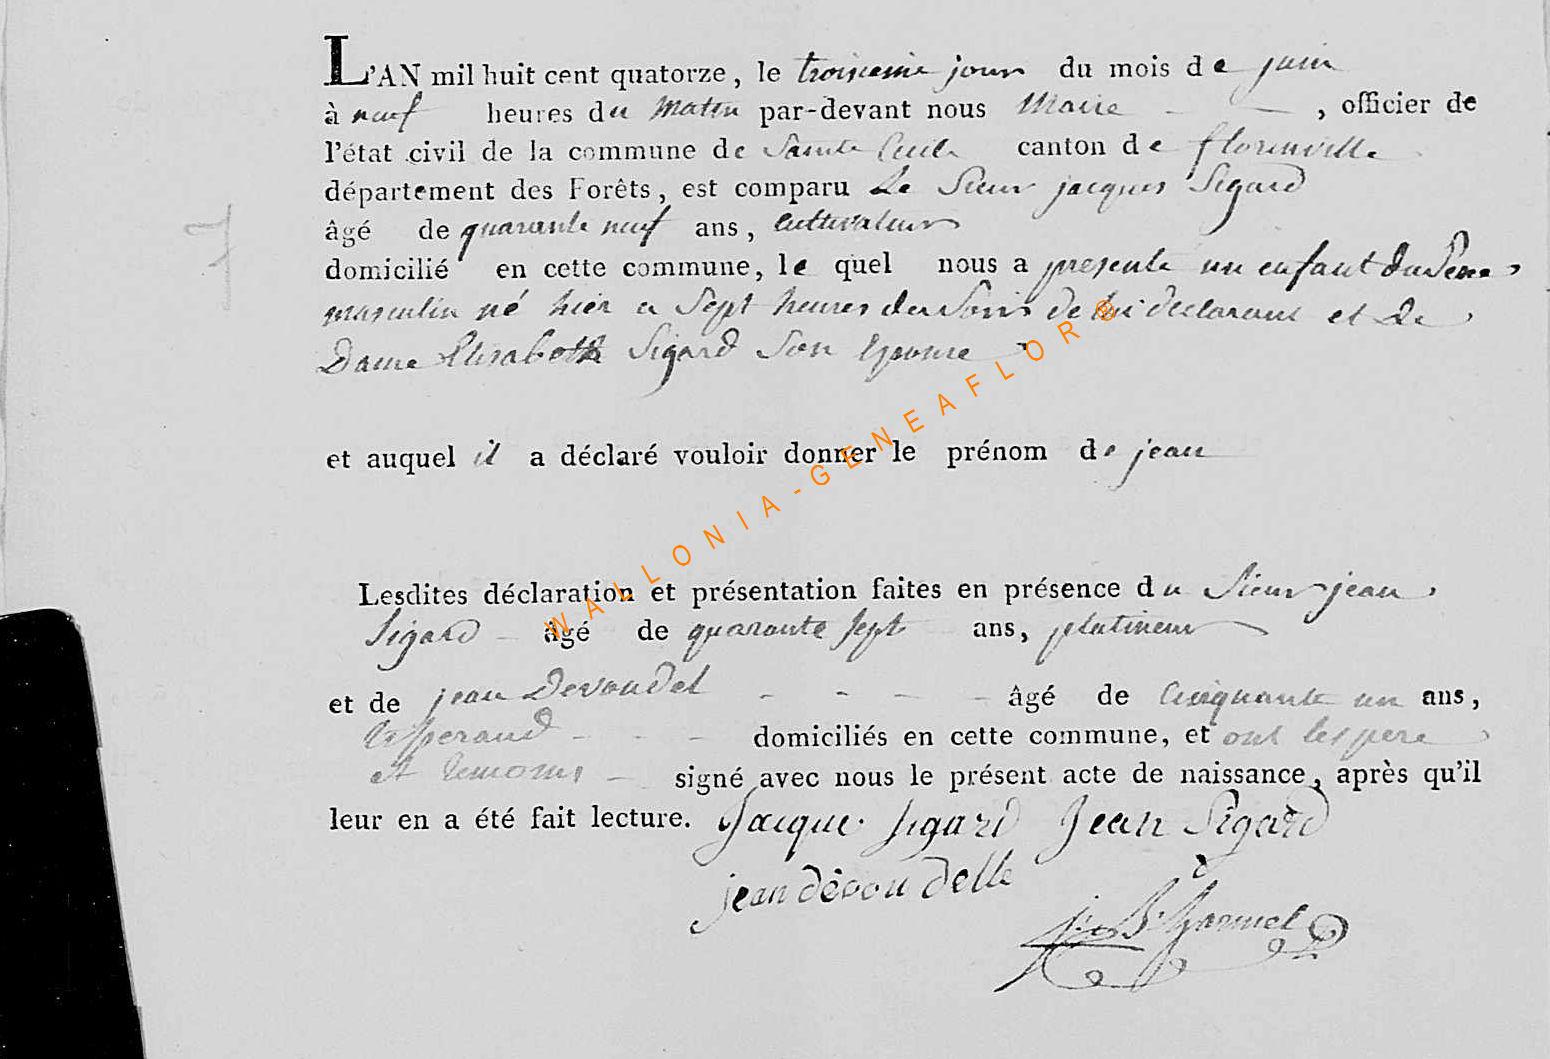 L'AN mil huit cent quatorze, le troisieme jour du mois de juin
à neuf heures du Matin par-devant nous Maire - - , officier de
l'état civil de la commune de Sainte Cecile canton de florenville
département des Forêts, est comparu Le Sieur jacques Sigard
âgé de quarante neuf ans, Cultivateur
domicilié en cette commune, le quel nous a presenté un enfant du Sexe
masculin né hier a Sept heures du Soir de lui declarant et de
Dame Elisabeth Sigard Son Epouse
et auquel il a déclaré vouloir donner le prénom de jean
Lesdites déclaration et présentation faites en présence du Sieur jean
Sigard - âgé de quarante Sept ans, platineur
et de jean Devoudel - - - - âgé de Cinquante un ans,
- - - domiciliés en cette commune, et ont les pere
et temoins - signé avec nous le présent acte de naissance, après qu'il
leur en a été fait lecture. Jacque Sigard Jean Sigard
jean devoudelle
7
WALLONIA-GENEAFLOR®